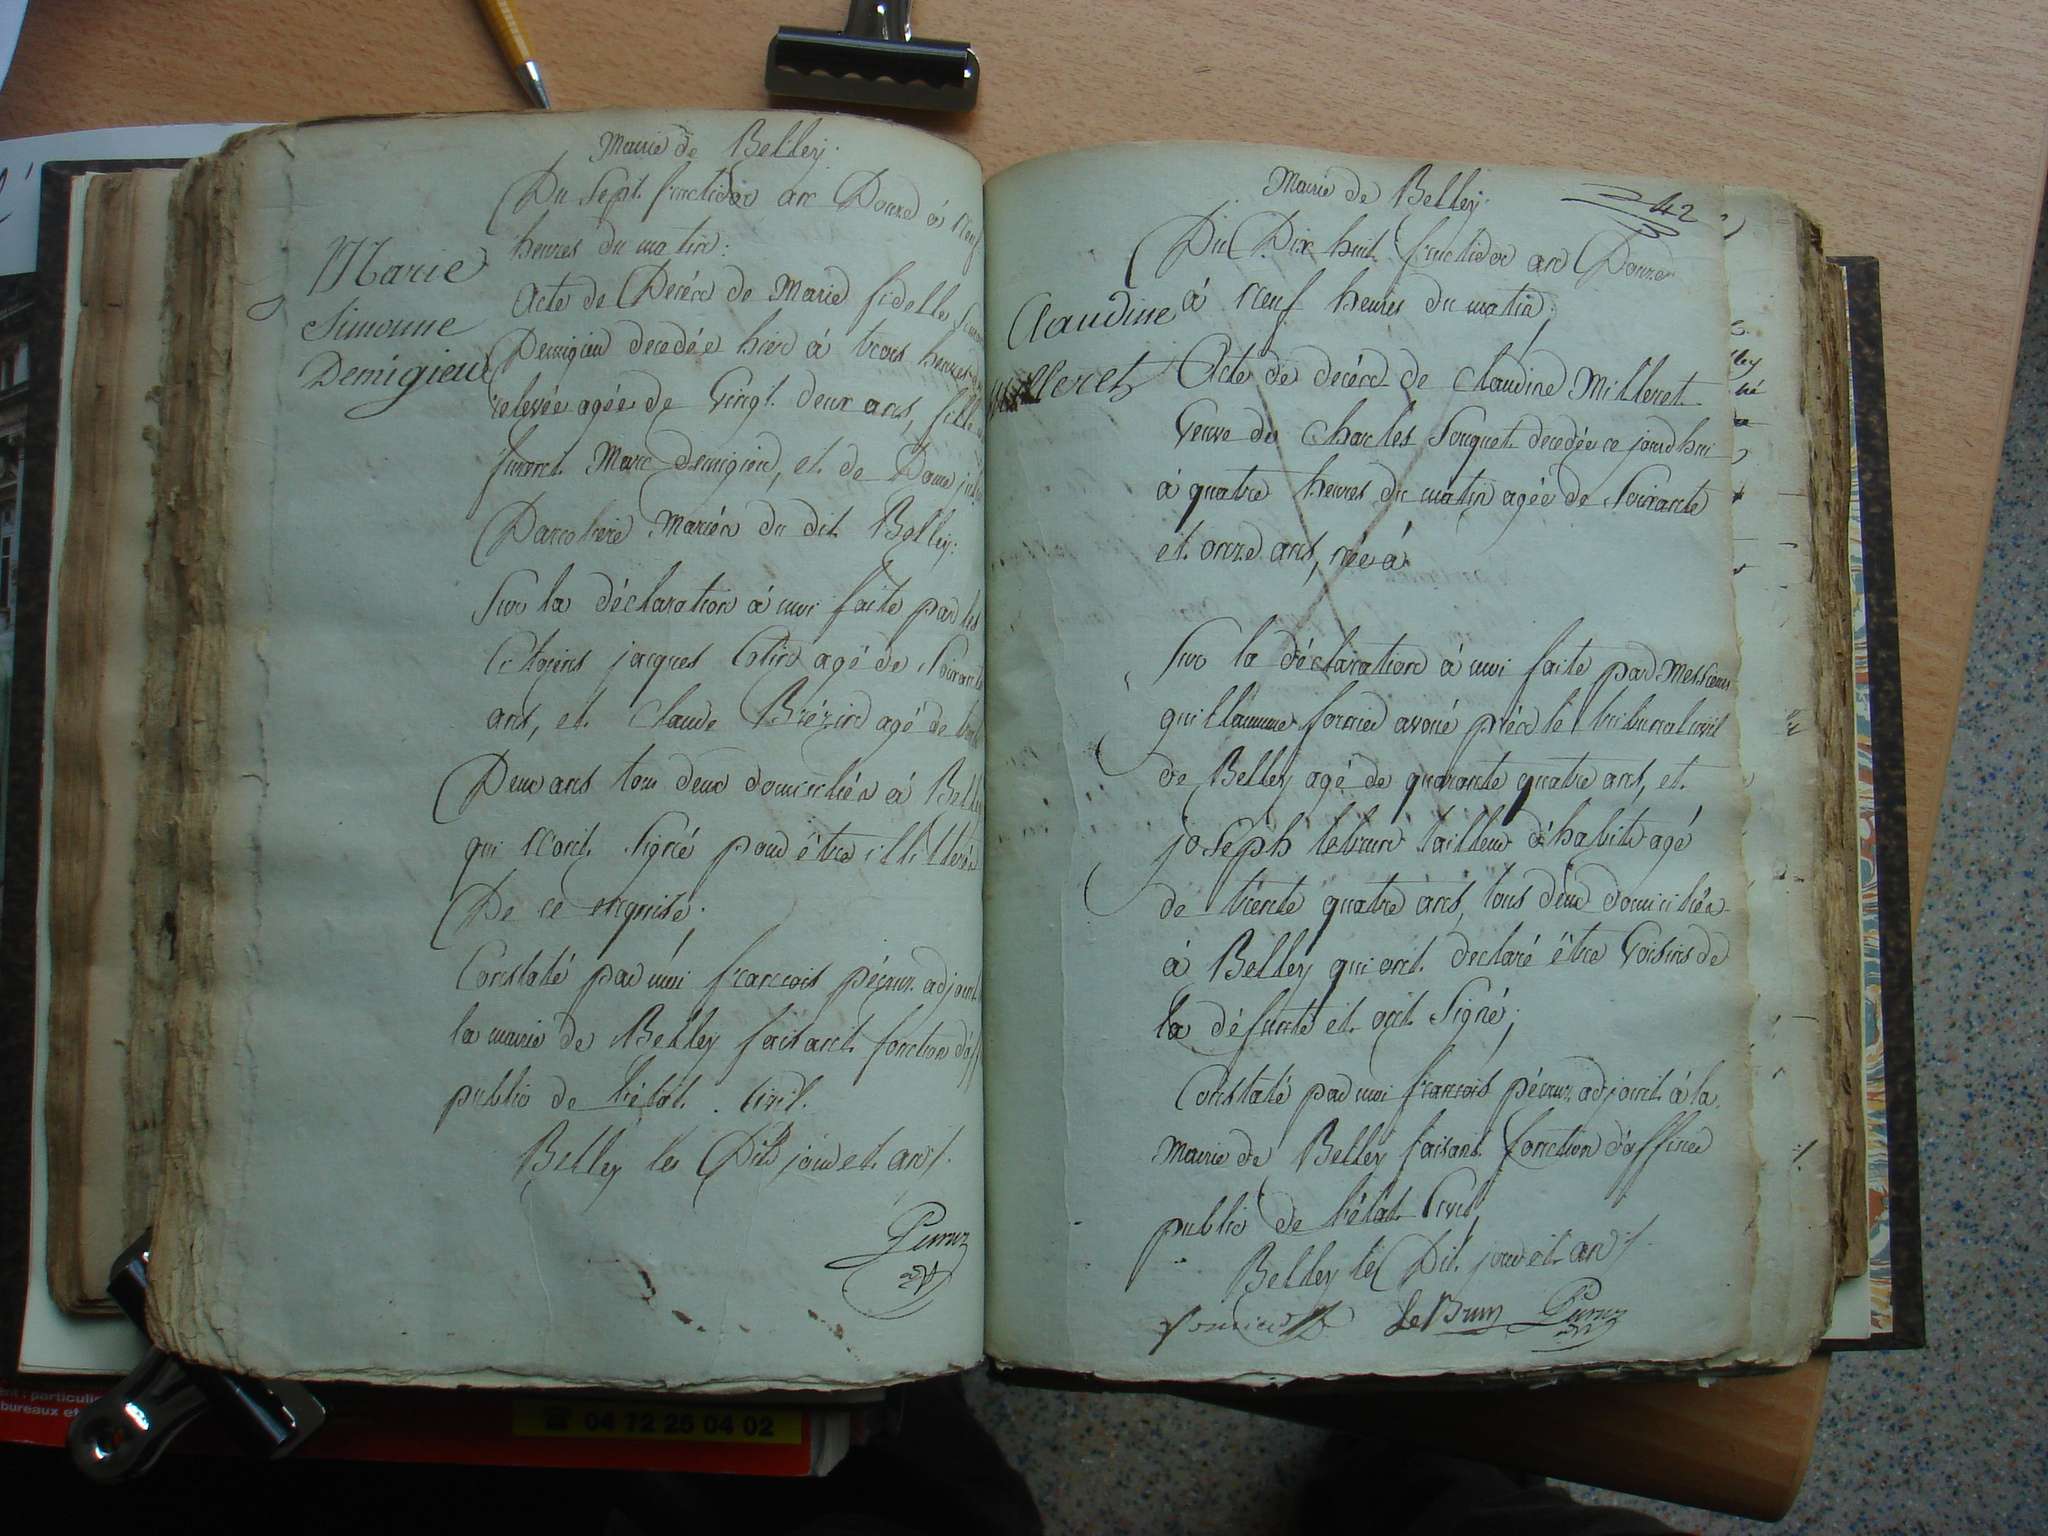 Mairie de Belley.
Du Sept fructidor an Douze à Neuf
heures du matin.
Marie
Simonne
Demigieu
Acte de Décéd de Marie fidelle
Demigieu decedée hier à trois heures
relevée agée de Vingt deux ans, fille
Marc demigieu, et de Dame
du dit Belley.
Sur la déclaration à moi faite par les
Citoyens jacques Colin agé de Soixante
ans, et Claude Brézin agé de
Deux ans tous deux domiciliés à Belley
qui n'ont Signé pour être illitterés
De ce enquise.
Constaté par moi francois pécux adjoint
la mairie de Belley faisant fonction d'off
public de l'état Civil.
Belley les Dits jour et an
Mairie de Belley.
42
Du Dix huit fructidor an Douze
à Neuf heures du matin;
Claudine
Milleret
Acte de decéd de Claudine Milleret
Veuve de Charles Souquet decedée ce jourdhui
à quatre heures du matin agée de Soixante
et onze ans, née à
Sur la déclaration à moi faite par Messieurs
guillaume fornier avoué près le tribunal civil
de Belley agé de quarante quatre ans, et
joseph lebrun tailleur d'habits agé
de trente quatre ans, tous deux domiciliés
à Belley qui ont declaré être Voisins de
la défunte et ont Signé;
Constaté par moi francois pécux adjoint à la
Mairie de Belley faisant fonction d'officier
public de l'état Civil
Belley les Dit jour et an
fornier LeBrun
04 72 25 04 02
ent : particuli
bureaux et